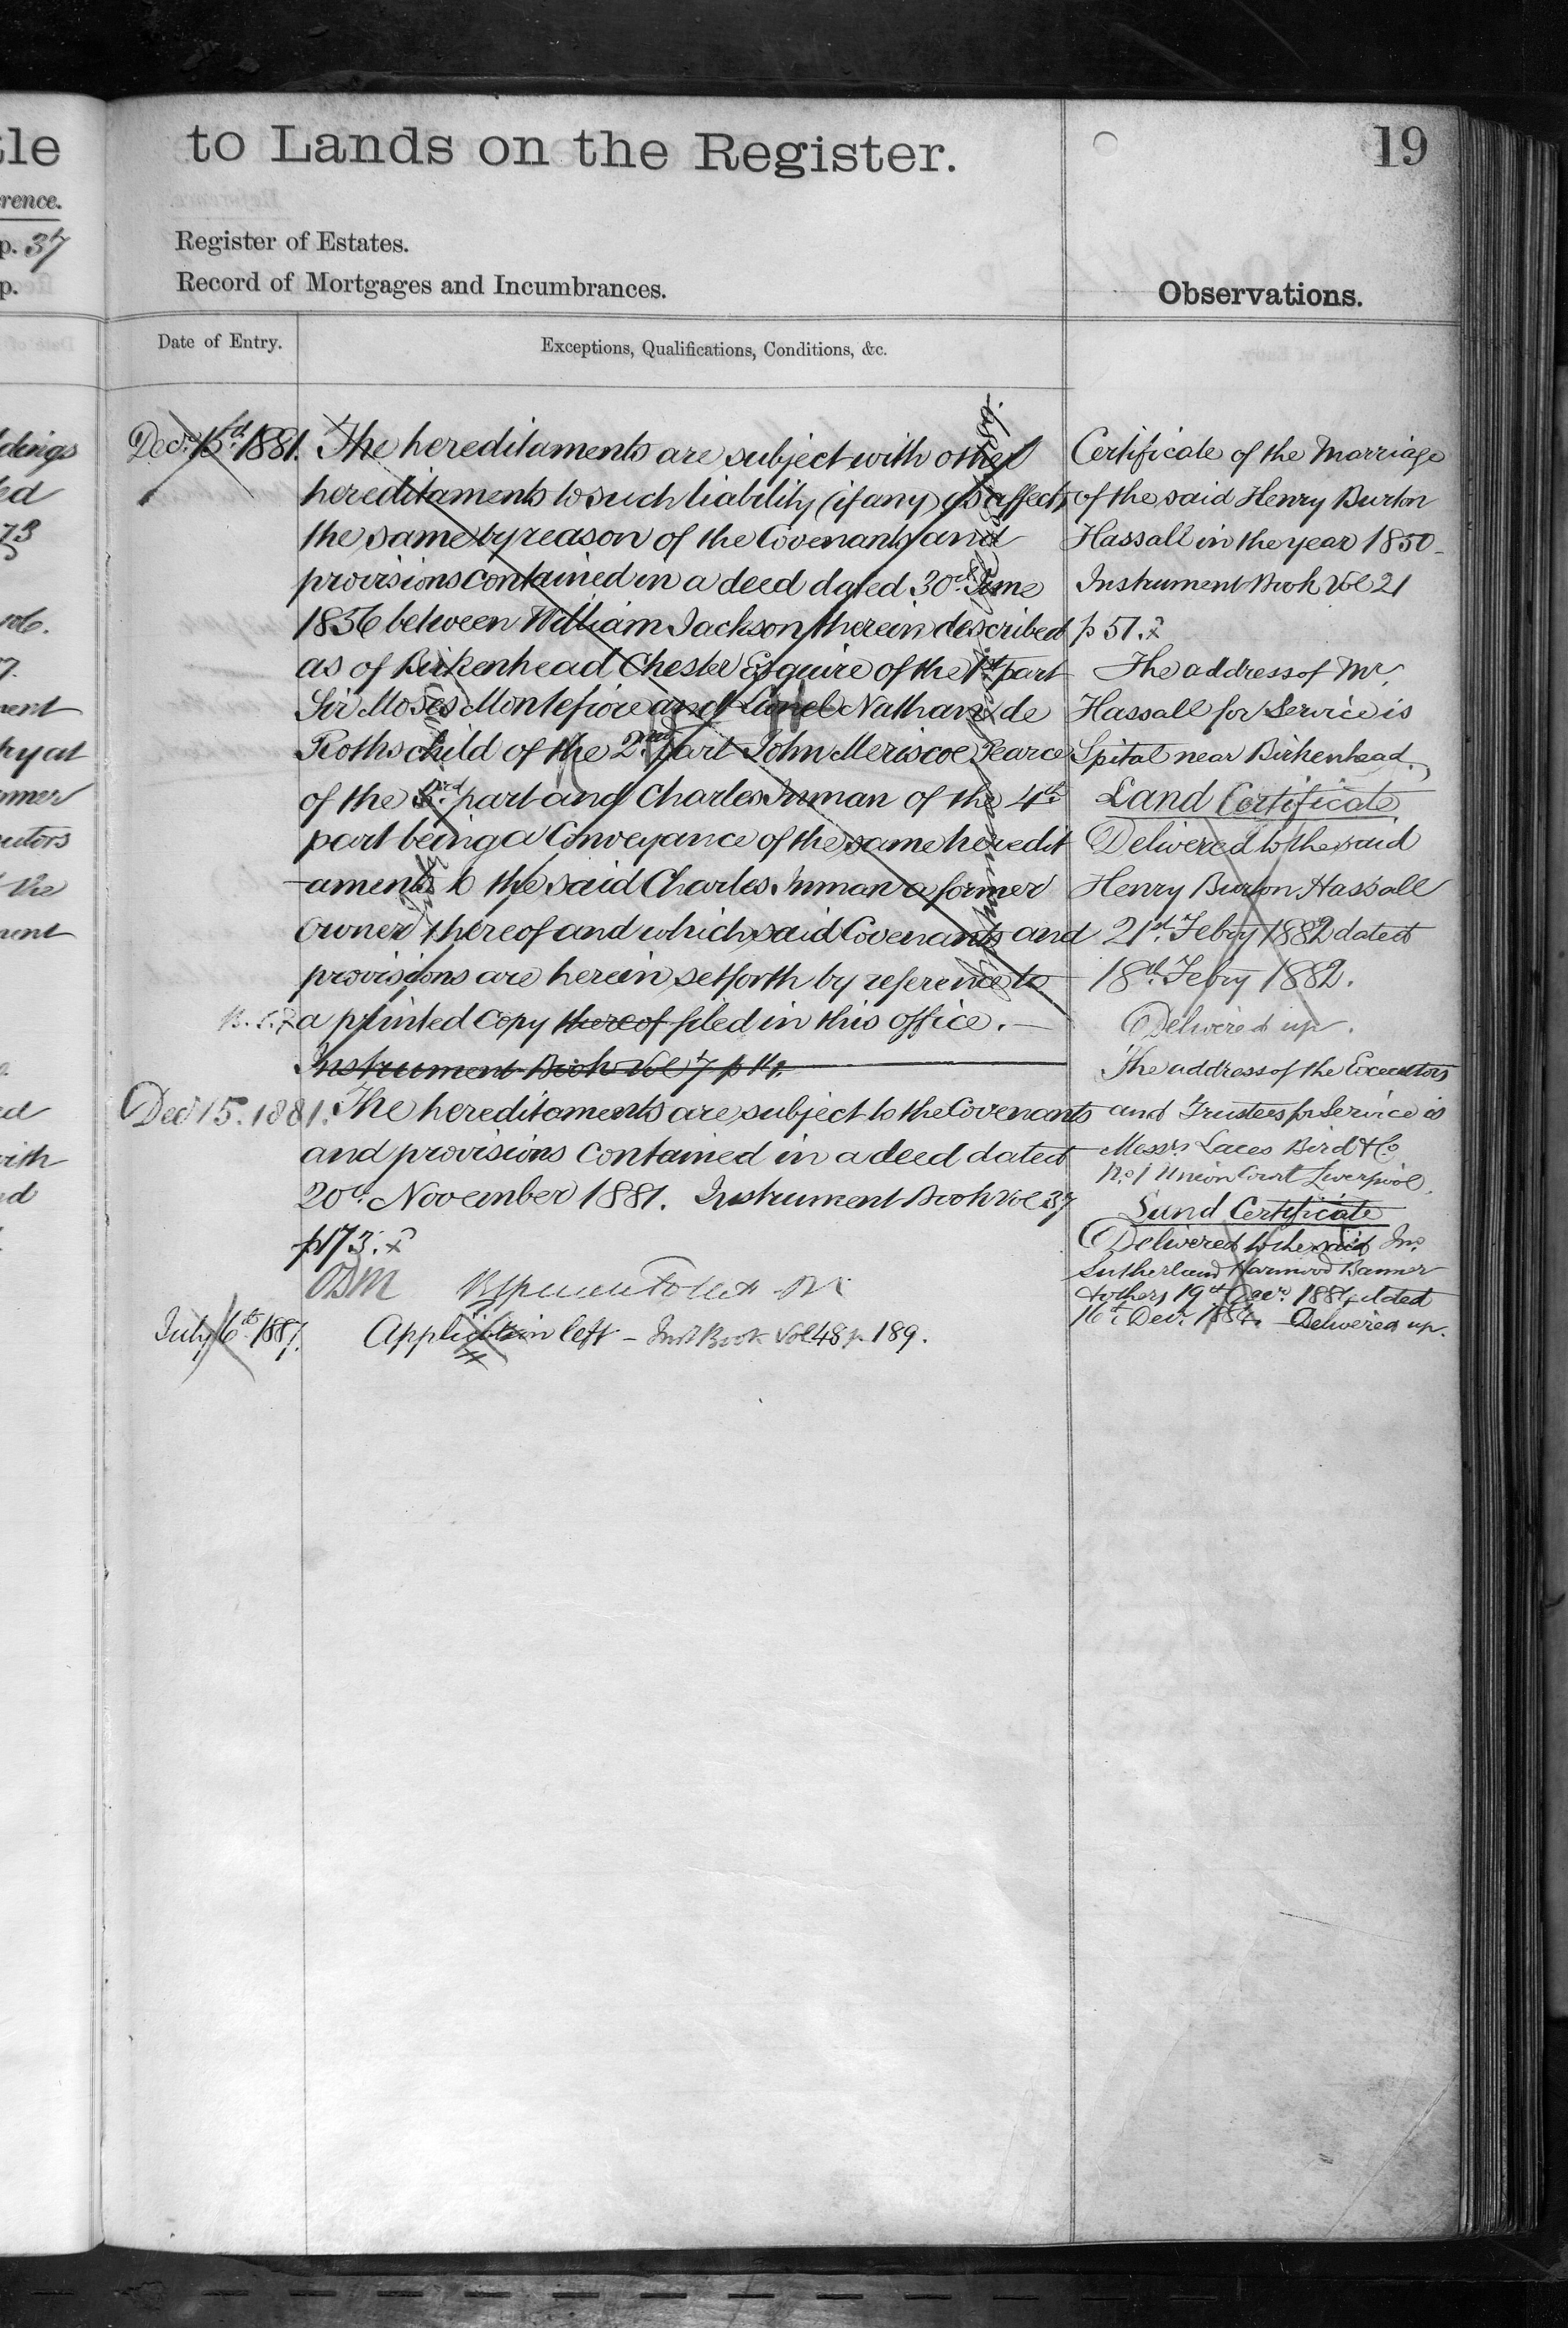 tle
to Lands on the Register.
19
rence.
p. 37
p.
Register of Estates.
Record of Mortgages and Incumbrances.
Observations.
Date of Entry.
Exceptions, Qualifications, Conditions, &c.
Decr. 15th 1881. The hereditaments are subject with other
hereditaments to such liability (if any) as affects
the same by reason of the Covenants and
provisions contained in a deed dated 30th June
1856 between William Jackson therein described
as of Birkenhead Chester Esquire of the 1st part
Sir Moses Montefiore and Lionel Nathan de
Rothschild of the 2nd part John Meriscoe Pearce
of the 3rd part and Charles Inman of the 4th
part being a Conveyance of the same heredit
aments to the said Charles Inman a former
owner thereof and which said Covenants and
provisions are herein setforth by reference to
a printed Copy thereof filed in this office.
Instrument Book Vol 7 p
Dec 15. 1881. The hereditaments are subject to the Covenants
and provisions contained in a deed dated
20th November 1881. Instrument Book Vol 37
p 173.
July 6th 1887. Application left – Inst Book Vol 48 p 189.
Certificate of the Marriage
of the said Henry Burton
Hassall in the year 1850
Instrument Book Vol 21
p 51.
The address of Mr.
Hassall for Service is
Spital near Birkenhead.
Land Certificate
Delivered to the said
Henry Burton Hassall
21st Febry 1882 dated
18th Febry 1882.
Delivered up.
The address of the Executors
and Trustees for Service is
Messrs Laces Bird & Co
No. 1 Union Court Liverpool.
Land Certificate
Delivered to the said Jno.
Sutherland Harmood Banner
& others 19th Decr. 1884 dated
16th Decr. 1884. Delivered up.